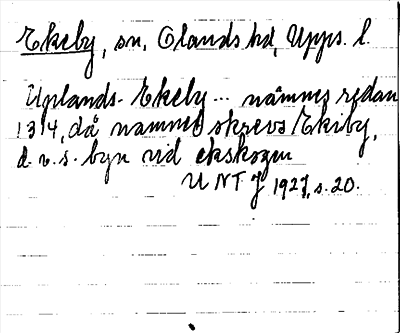 Ekeby, sn, Olands hd, Upps. l.
Uplands-Ekeby ... nämnes redan
1314, då namnet skrevs Ekiby,
d.v.s. byn vid ekskogen
UNT J 1927, s. 20.